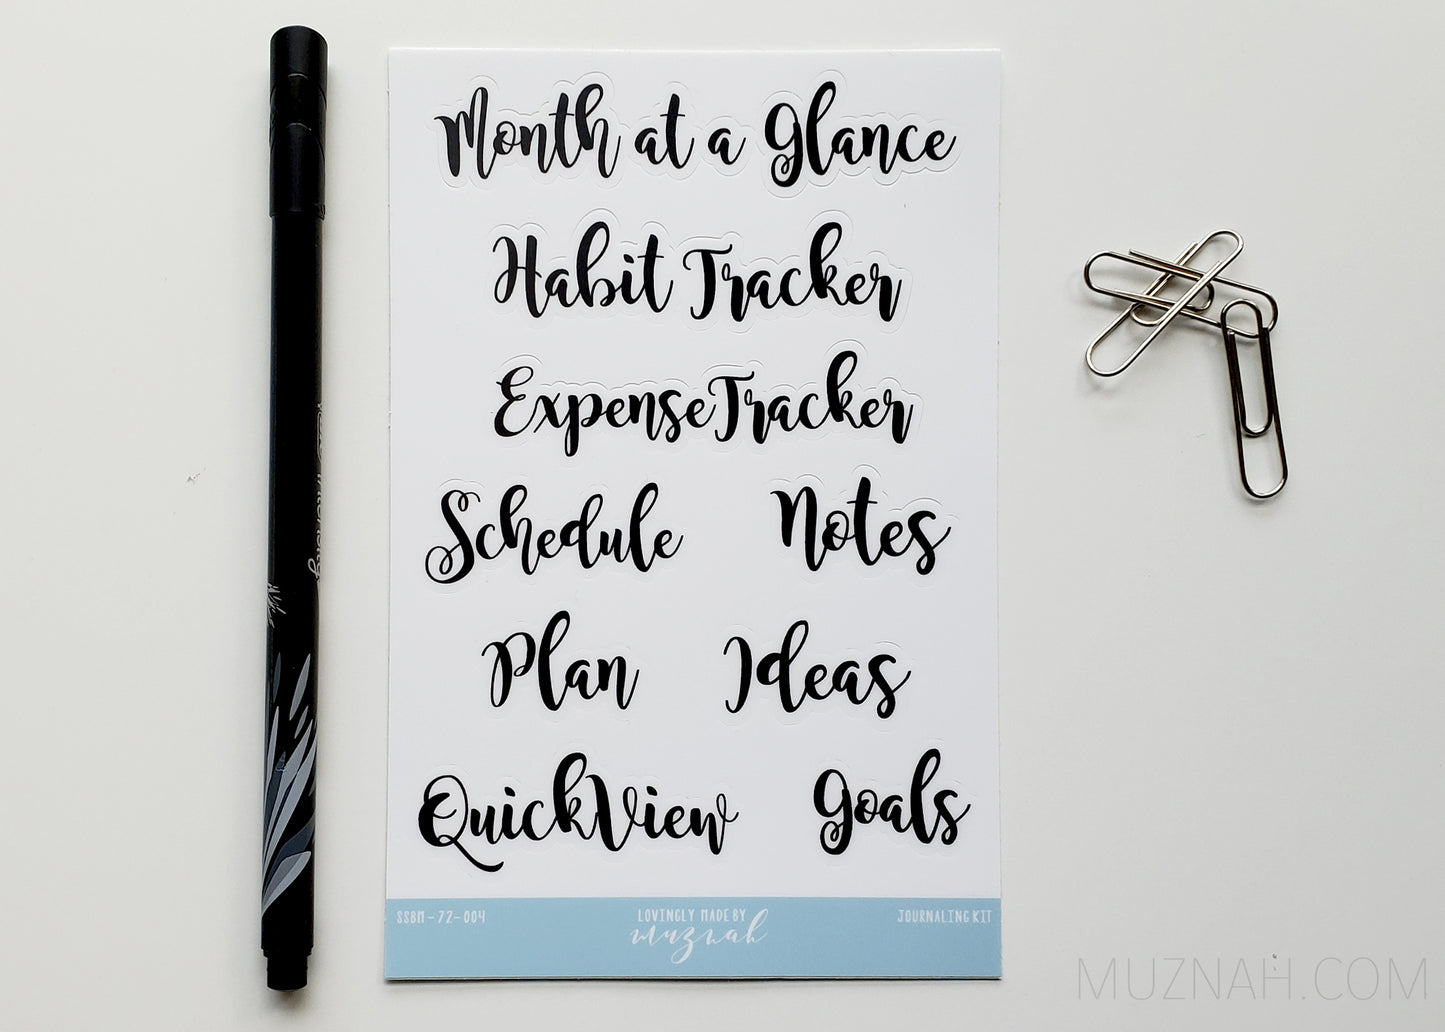 Month at a Glance
Habit Tracker
Expense Tracker
Schedule
Notes
Plan
Ideas
Quick View
Goals
SSBM-72-004
LOVINGLY MADE BY
muznah
JOURNALING KIT
MUZNAH.COM